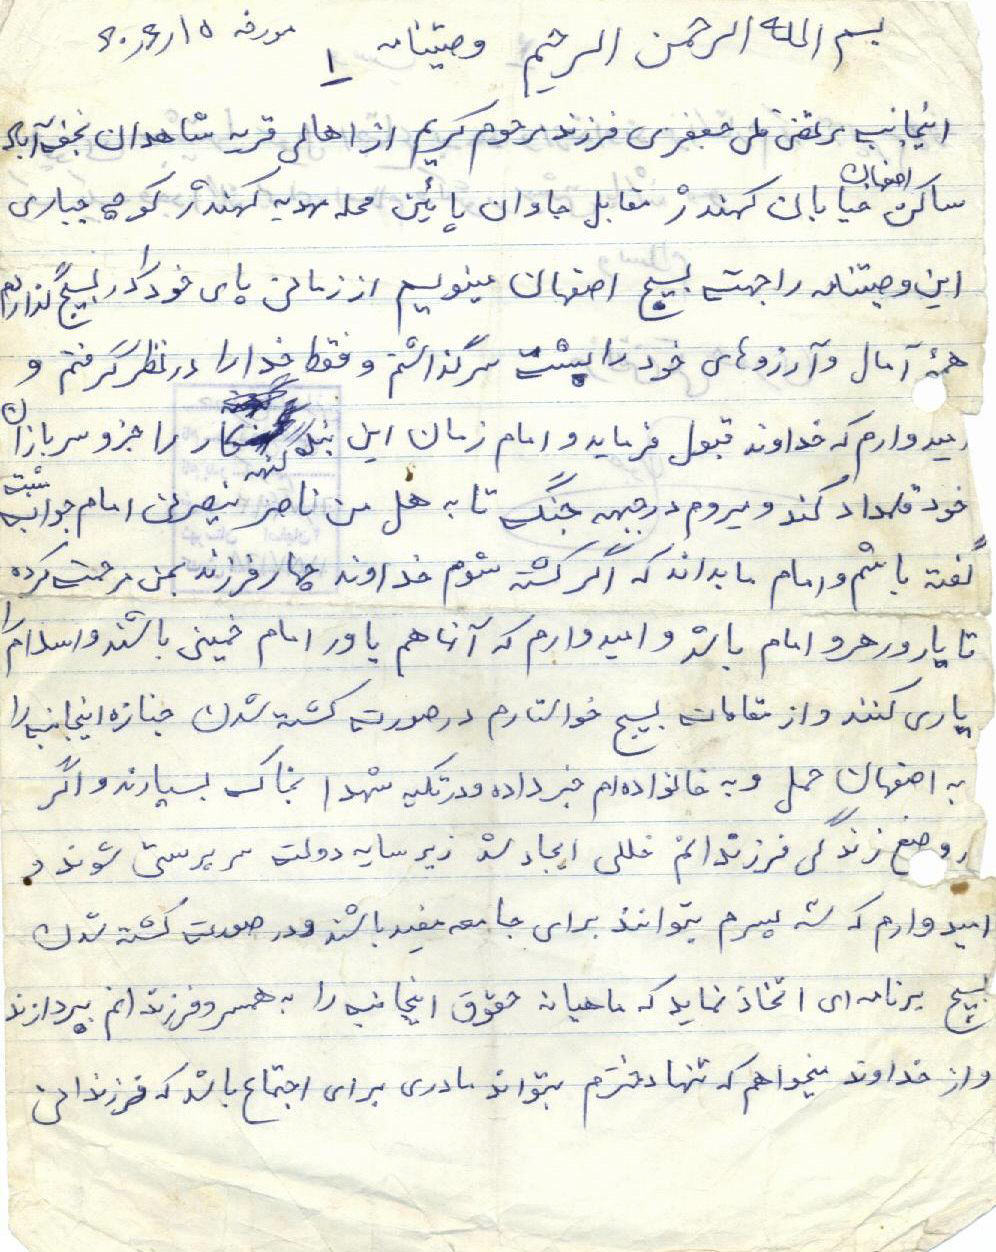 بسم الله الرحمن الرحیم وصیتنامه مورخه
۱
اینجانب مرتضی جعفری فرزند مرحوم کریم از اهالی قریه شاهدان نجف‌آباد
اصفهان
ساکن خیابان کهندژ مقابل جاوان پائین محله مهدیه کهندژ کوچه جباری
این وصیتنامه را جهت بسیج اصفهان مینویسم از زمانی پای خود را در بسیج گذاردم
همهٔ آمال و آرزوهای خود را پشت سر گذاشتم و فقط خدا را در نظر گرفتم و
امیدوارم که خداوند قبول فرماید و امام زمان این بنده گنهکار را جزو سربازان
خود قلمداد کند و میروم در جبهه جنگ تا به هل من ناصر ینصرنی امام جواب مثبت
گفته باشم و امام ما بداند که اگر کشته شوم خداوند چهار فرزند بمن مرحمت کرده
تا یار و رهرو امام باشد و امیدوارم که آنها هم یاور امام خمینی باشند و اسلام را
یاری کنند و از مقامات بسیج خواستارم در صورت کشته شدن جنازه اینجانب را
به اصفهان حمل و به خانواده‌ام خبر داده و در تکیه شهدا بخاک بسپارند و اگر
در وضع زندگی فرزندانم خللی ایجاد شد زیر سایه دولت سرپرستی شوند و
امیدوارم که سه پسرم بتوانند برای جامعه مفید باشند و در صورت کشته شدن
بسیج برنامه‌ای اتخاذ نماید که ماهیانه حقوق اینجانب را به همسر و فرزندانم بپردازند
و از خداوند میخواهم که تنها دخترم بتواند مادری برای اجتماع باشد که فرزندانی